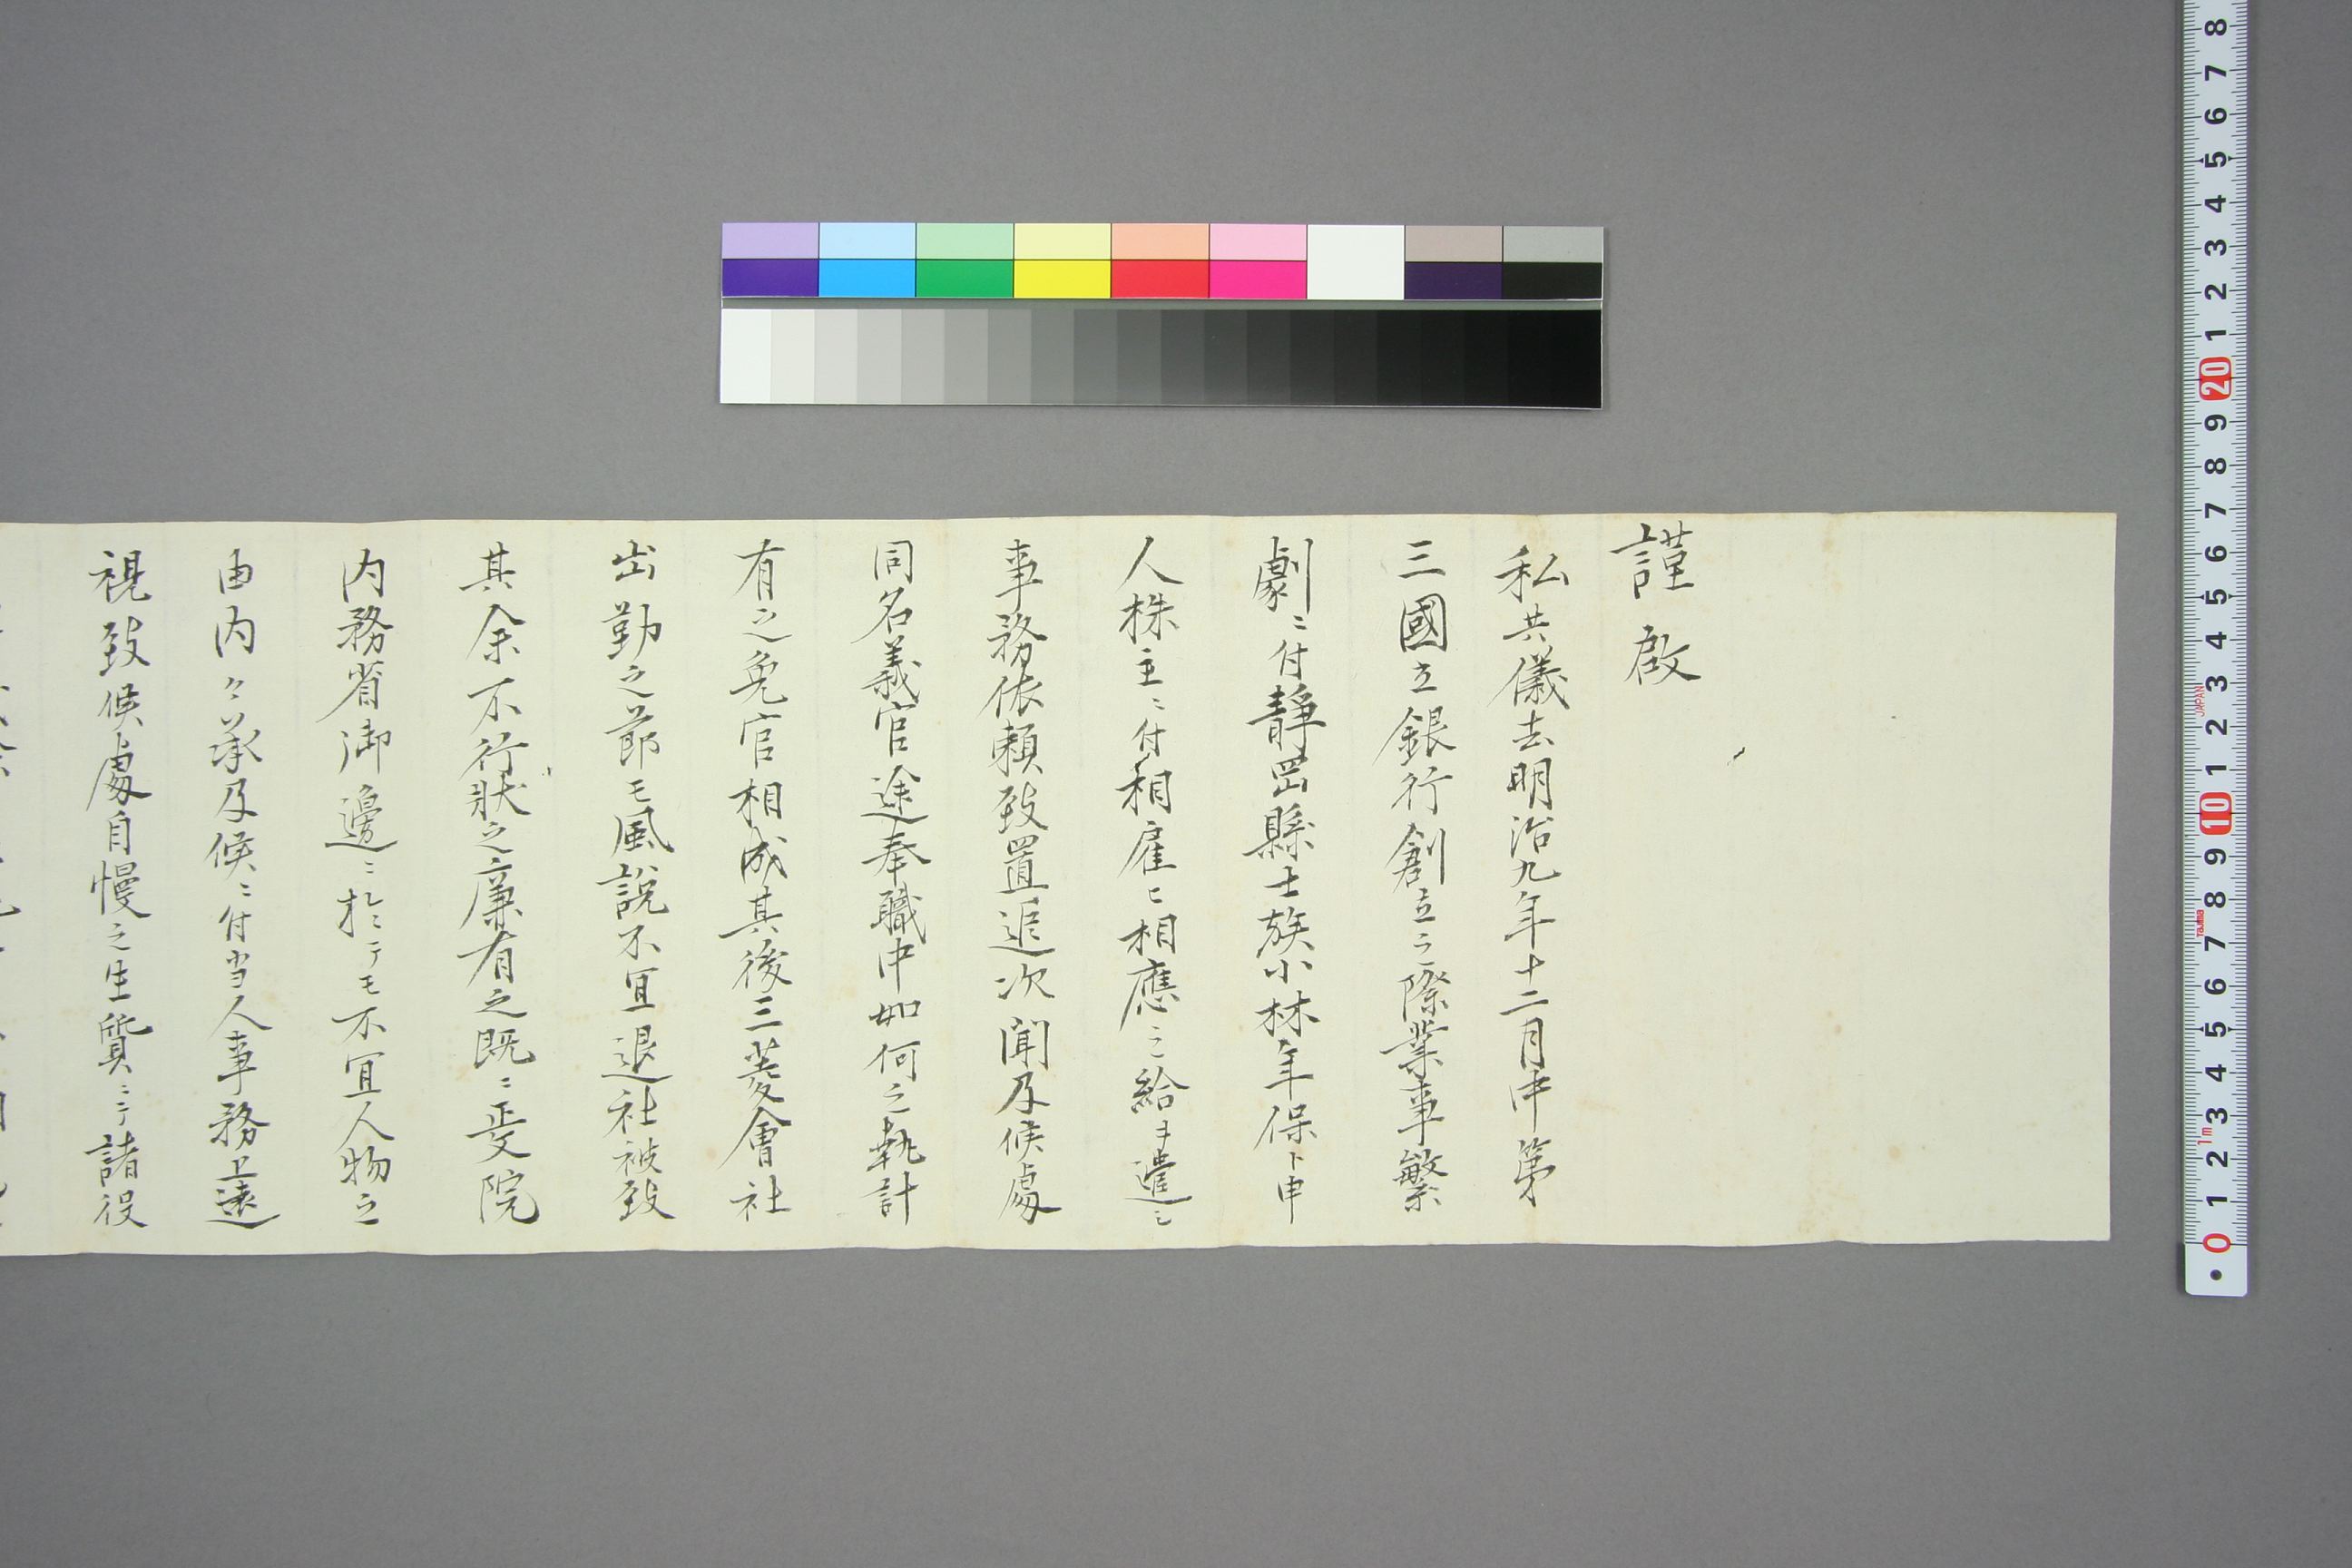 謹啟
私共儀去明治九年十二月中第
三國立銀行創立之際業事繁
劇ニ付静岡縣士族小林年保ト申
人株主ニ付相雇ヒ相應之給ヲ遣シ
事務依頼致置追次聞及候處
同名義官途奉職中如何之執計
有之免官相成其後三菱會社
出勤之節モ風説不宜退社被致
其余不行狀之廉有之既ニ元院
内務省御邊ニ於テモ不宜人物之
由内々承及候ニ付当人事務上遠
視致候處自慢之生質ニテ諸役
8
7
6
5
4
3
2
1
20
9
8
7
6
5
4
3
2
1
10
9
8
7
6
5
4
3
2
1
0
JAPAN
Tajima
1m